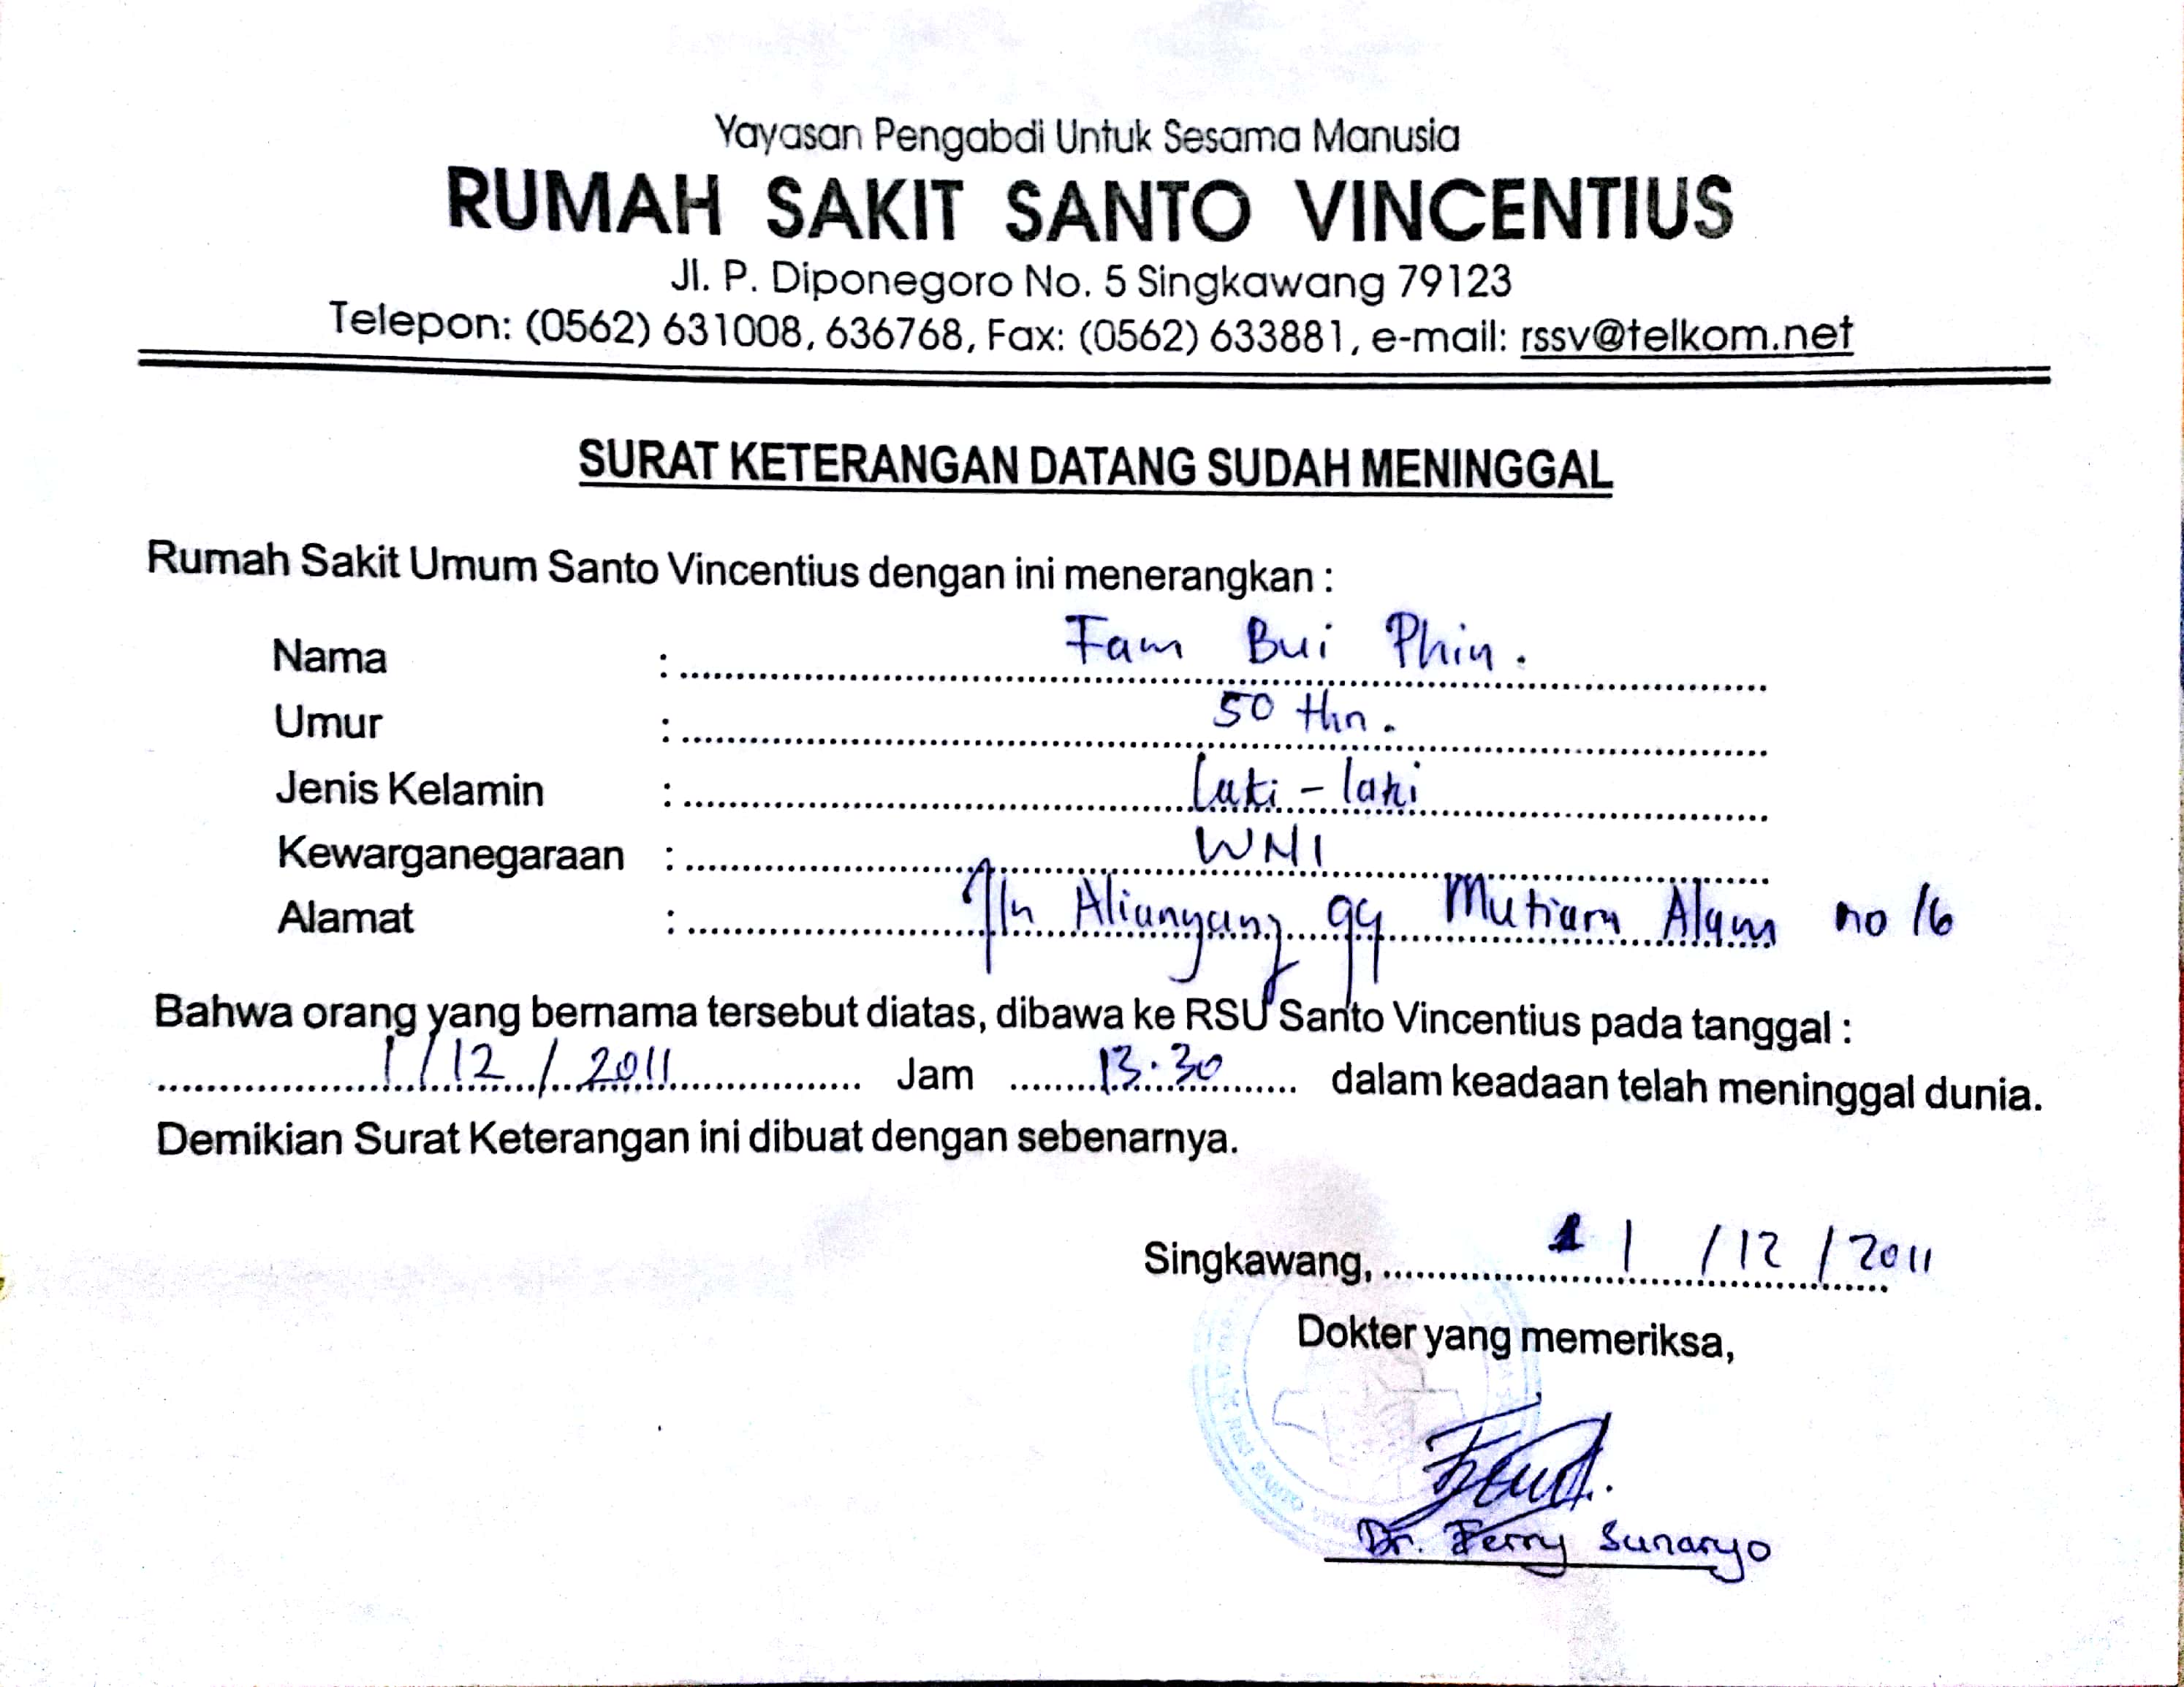 Yayasan Pengabdi Untuk Sesama Manusia
RUMAH SAKIT SANTO VINCENTIUS
Jl. P. Diponegoro No. 5 Singkawang 79123
Telepon: (0562) 631008, 636768, Fax: (0562) 633881, e-mail: rssv@telkom.net
SURAT KETERANGAN DATANG SUDAH MENINGGAL
Rumah Sakit Umum Santo Vincentius dengan ini menerangkan :
Nama : Fam Bui Phin.
Umur : 50 thn.
Jenis Kelamin : Laki - laki
Kewarganegaraan : WNI
Alamat : Jln Alianyang gg Mutiara Alam no 16
Bahwa orang yang bernama tersebut diatas, dibawa ke RSU Santo Vincentius pada tanggal :
1/12/2011 Jam 13.30 dalam keadaan telah meninggal dunia.
Demikian Surat Keterangan ini dibuat dengan sebenarnya.
Singkawang, 1 /12/2011
Dokter yang memeriksa,
Dr. Ferry Sunaryo